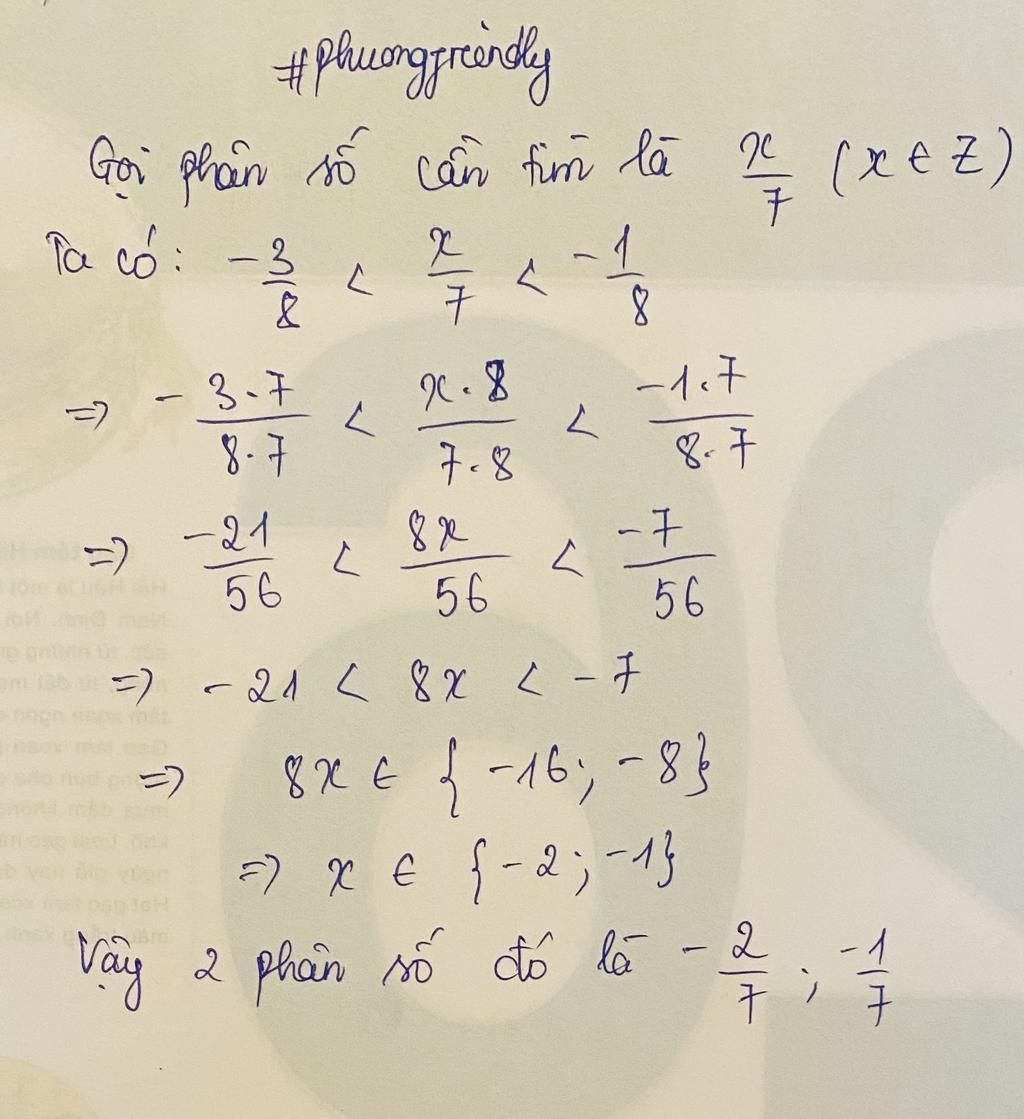 #phuongfreindly
Gọi phân số cần tìm là x/7 (x ∈ Z)
Ta có: -3/8 < x/7 < -1/8
=> -3.7/8.7 < x.8/7.8 < -1.7/8.7
=> -21/56 < 8x/56 < -7/56
=> -21 < 8x < -7
=> 8x ∈ {-16; -8}
=> x ∈ {-2; -1}
Vậy 2 phân số đó là -2/7; -1/7